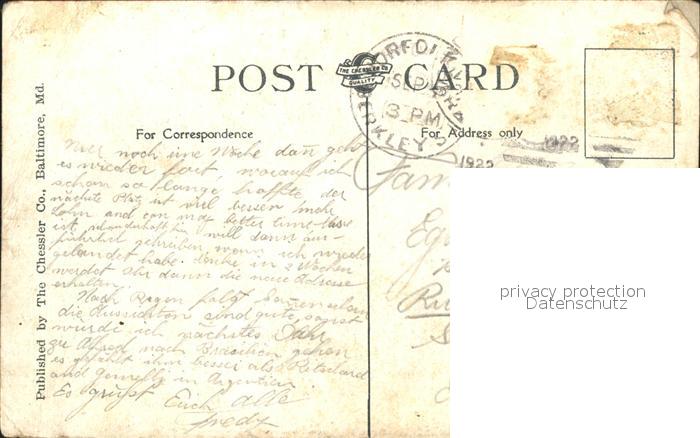 POST CARD
THE CHESSLER CO
QUALITY
NORFOLK, VA.
SEP
3 PM
BERKLEY
1922
1922
For Correspondence
For Address only
Published by The Chessler Co., Baltimore, Md.
Nur noch eine Woche dann geht
es wieder fort, worauf ich
schon so lange hoffte der
nächste Platz ist viel besser mehr
Lohn and can make better time
ist will dann aus-
führlich schreiben wenn ich wieder
gelandet habe. Denke in 2 Wochen
werdet Ihr dann die neue Adresse
erhalten.
Nach Regen folgt Sonnenschein
die Aussichten sind gute, sonst
würde ich nächstes Jahr
zu Alfred nach Brasilien gehen
es gefällt ihm besser als
and in Argentinien
Es grüsst Euch alle
Fredy
Fam
privacy protection
Datenschutz